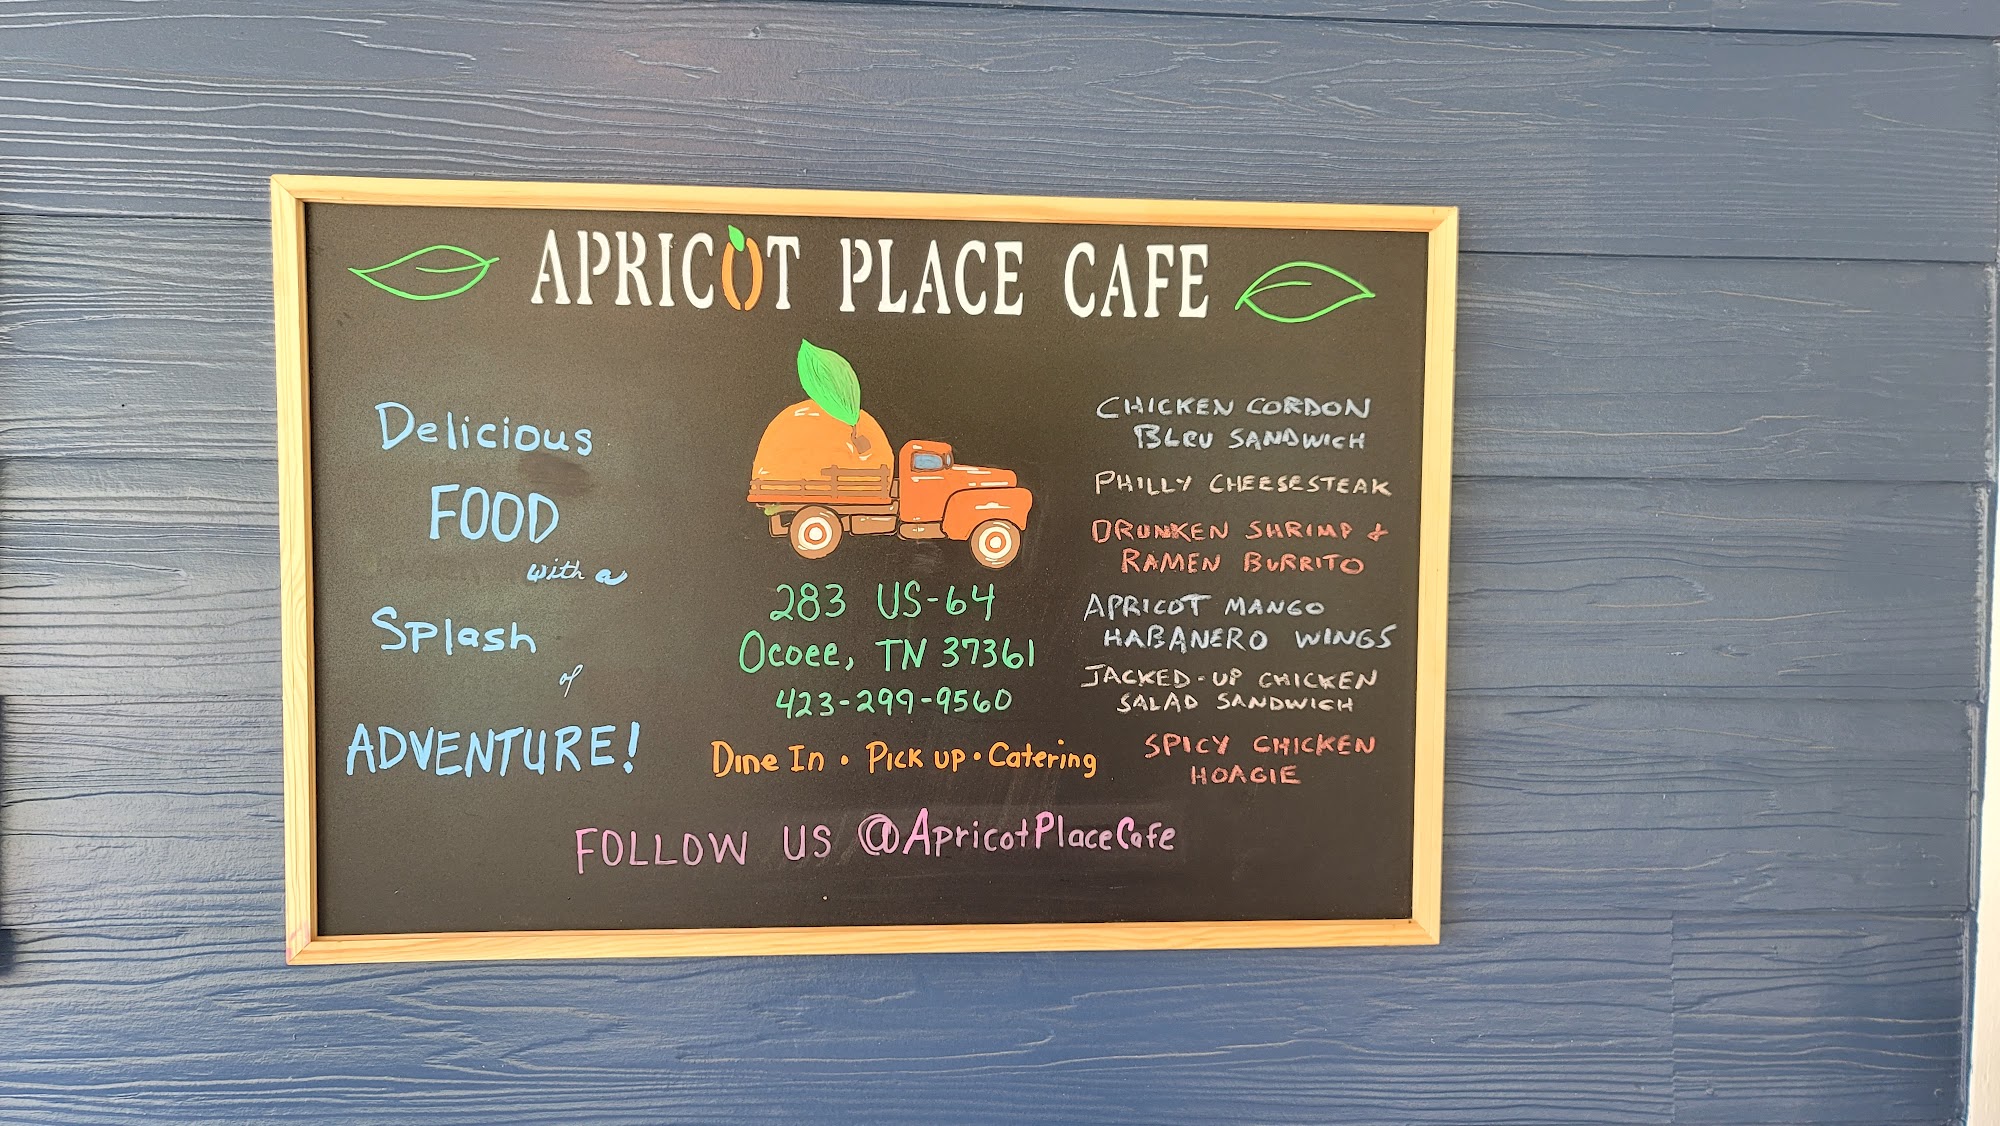 APRICOT PLACE CAFE
Delicious
FOOD
with a
Splash
of
ADVENTURE!
283 US-64
Ocoee, TN 37361
423-299-9560
Dine In • Pick up • Catering
CHICKEN CORDON
BLEU SANDWICH
PHILLY CHEESESTEAK
DRUNKEN SHRIMP &
RAMEN BURRITO
APRICOT MANGO
HABANERO WINGS
JACKED-UP CHICKEN
SALAD SANDWICH
SPICY CHICKEN
HOAGIE
FOLLOW US @ApricotPlaceCafe